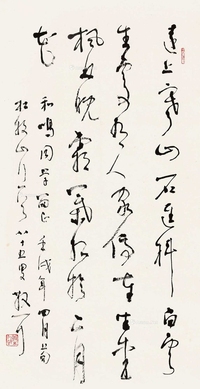 遠上寒山石逕斜白雲
生處有人家停車坐愛
楓林晚霜葉紅於二月
花
和鳴同學 壬戌年四月
杜牧山行詩八十五叟散耳